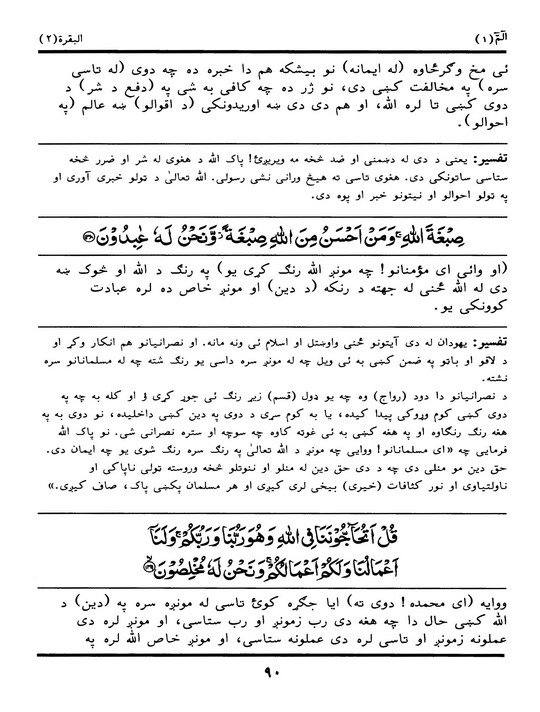 الٓمّٓ (۱)
البقرة (۲)
ئی مخ وګرځاوه (له ایمانه) نو بیشکه هم دا خبره ده چه دوی (له تاسی
سره) په مخالفت کښی دی، نو ژر ده چه کافی به شی په (دفع د شر) د
دوی کښی تا لره الله، او هم دی دی ښه اوریدونکی (د اقوالو) ښه عالم (په
احوالو).
تفسیر: یعنی د دی له دښمنی او ضد څخه مه ویریږئ! پاک الله د هغوی له شر او ضرر څخه
ستاسی ساتونکی دی. هغوی تاسی ته هیڅ ورانی نشی رسولی. الله تعالیٰ د ټولو خبری آوری او
په ټولو احوالو او نیتونو خبر او پوه دی.
صِبْغَةَ اللهِ ۚ وَمَنْ اَحْسَنُ مِنَ اللهِ صِبْغَةً ۫ وَّنَحْنُ لَهٗ عٰبِدُوْنَ
(او وائی ای مؤمنانو! چه مونږ الله رنګ کړی یو) په رنګ د الله او څوک ښه
دی له الله ځنی له جهته د رنګه (د دین) او مونږ خاص ده لره عبادت
کوونکی یو.
تفسیر: یهودان له دی آیتونو ځنی واوښتل او اسلام ئی ونه مانه. او نصرانیانو هم انکار وکړ او
د لافو او باتو په ضمن کښی به ئی ویل چه له مونږ سره داسی یو رنګ شته چه له مسلمانانو سره
نشته.
د نصرانیانو دا دود (رواج) وه چه یو ډول (قسم) زیړ رنګ ئی جوړ کړی ؤ او کله به چه په
دوی کښی کوم وړوکی پیدا کیده، یا به کوم سړی د دوی په دین کښی داخلیده، نو دوی به په
هغه رنګ رنګاوه او په هغه کښی به ئی غوټه کاوه چه سوچه او ستره نصرانی شی. نو پاک الله
فرمایی چه «ای مسلمانانو! ووایی چه مونږ د الله تعالیٰ په رنګ سره رنګ شوی یو چه ایمان دی.
حق دین مو منلی دی چه د دی حق دین له منلو او ننوتلو څخه وروسته ټولی ناپاکی او
ناولتیاوی او نور کثافات (خیری) بیخی لری کیږی او هر مسلمان پکښی پاک، صاف کیږی.»
قُلْ اَتُحَآجُّوْنَنَا فِی اللهِ وَهُوَ رَبُّنَا وَرَبُّكُمْ ۚ وَلَنَآ
اَعْمَالُنَا وَلَكُمْ اَعْمَالُكُمْ ۚ وَنَحْنُ لَهٗ مُخْلِصُوْنَ
ووایه (ای محمده! دوی ته) ایا جګړه کوئ تاسی له مونږه سره په (دین) د
الله کښی حال دا چه هغه دی رب زمونږ او رب ستاسی، او مونږ لره دی
عملونه زمونږ او تاسی لره دی عملونه ستاسی، او مونږ خاص الله لره په
۹۰